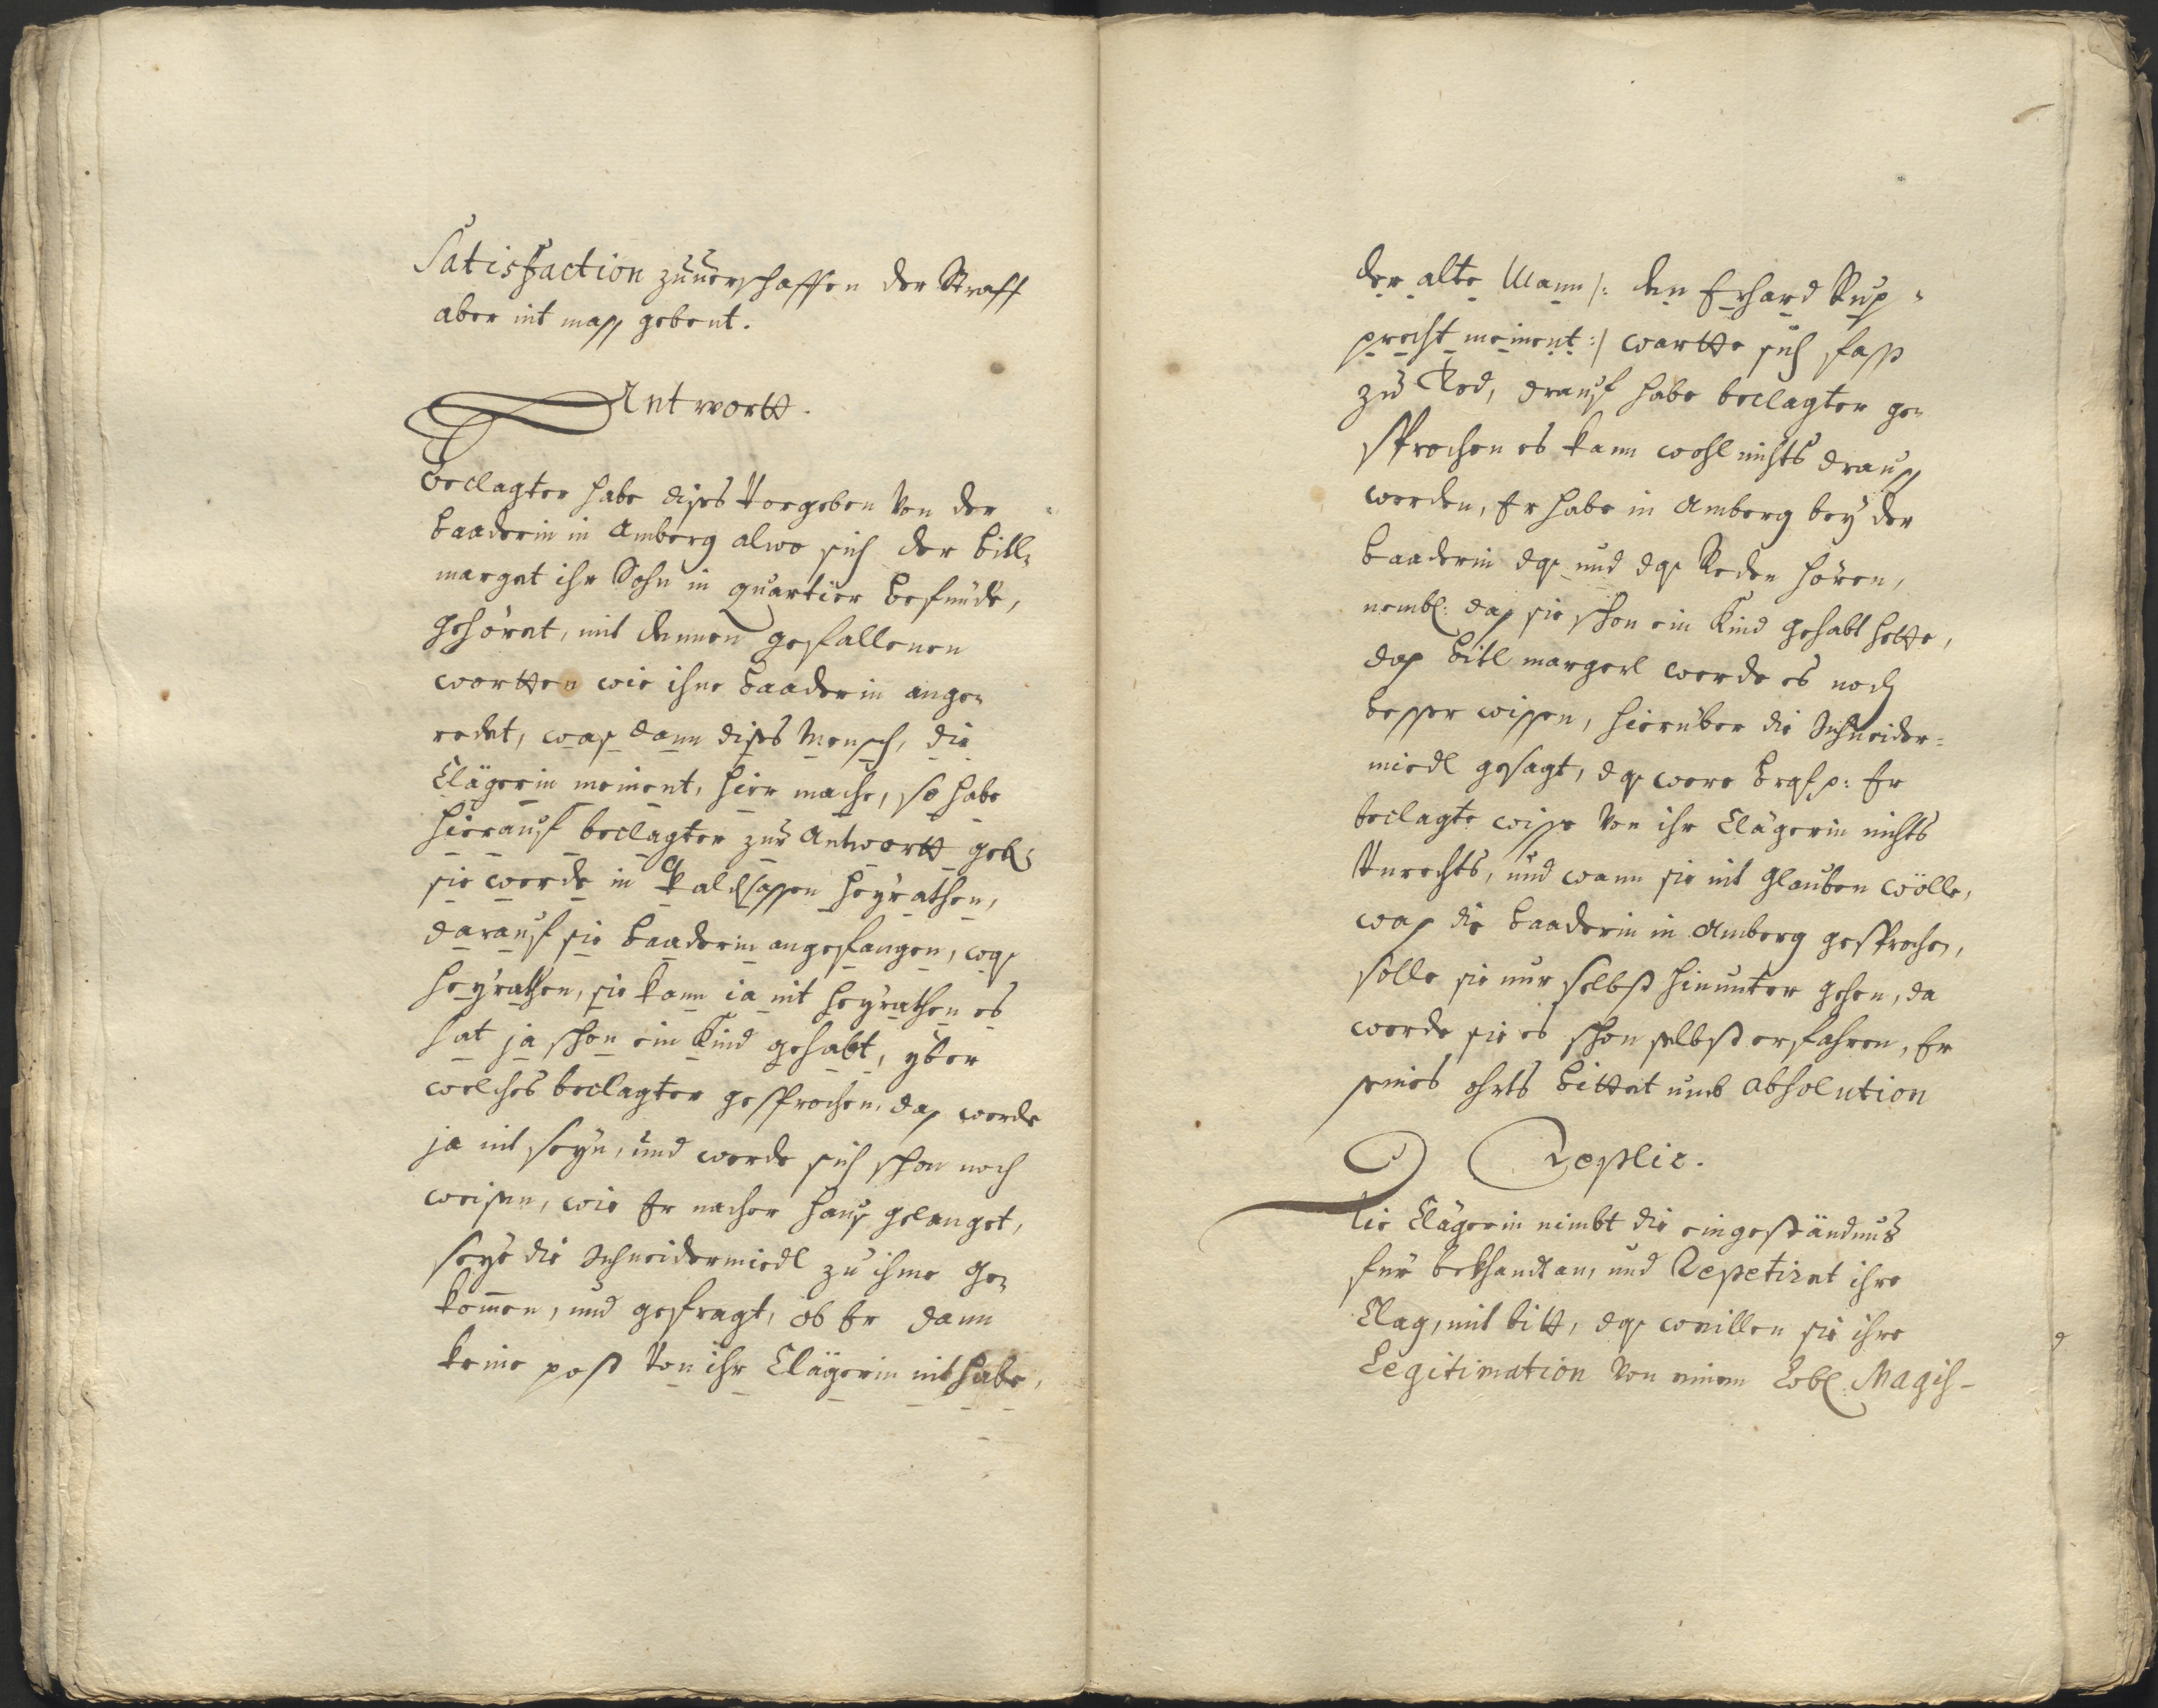 Satisfaction zuuerschaffen der Straff
aber nit mass gebent.
Antwortt.
Beclagter habe dises Vorgeben Von der
Baaderin in Amberg alwo sich der Bitl„
marget ihr Sohn in quartier befünde,
gehöret, mit dennen gefallenen
wortten wie ihne Baaderin ange„
redet, was dann dises Mensch, die
Clägerin meinent, hier mache, so habe
hierauf beclagter zur Antwortt geb:
sie werde in Waldsassen heyrathen,
darauf sie Baaderin angefangen, was
heyrathen, sie kann ia nit heyrathen es
hat ja schon ein Kind gehabt, yber
welches beclagter gesprochen, das werde
ja nit seyn, und werde sich schon noch
weisen, wie Er nacher haus gelanget,
seye die Schneidermiedl zu ihme ge„
kommen, und gefragt, ob Er dann
keine post Von ihr Clägerin nit habe,
der alte Mann /: den Erhard Rup„
precht meinent :/ wartte sich fass
zu Tod, drauf habe beclagter ge„
sprochen es kann wohl nichts drauss
werden, Er habe in Amberg bey der
Baaderin das und das Reden hören,
nembl: das sie schon ein Kind gehabt hette,
das Bitl margerl werde es noch
besser wissen, hierüber die Schneider=
miedl gesagt, das were p: Er
beclagte wisse Von ihr Clägerin nichts
Unrechts, und wann sie nit glauben wölle,
was die Baaderin in Amberg gesprochen,
solle sie nur selbst hinunter gehen, da
werde sie es schon selbst erfahren, Er
seines ohrts bittet umb absolution
Replic.
Die Clägerin nimbt die eingeständnus
für bekhandt an, und Repetiret ihre
Clag, mit bitt, das weillen sie ihre
Legitimation Von einem Lobl: Magis-